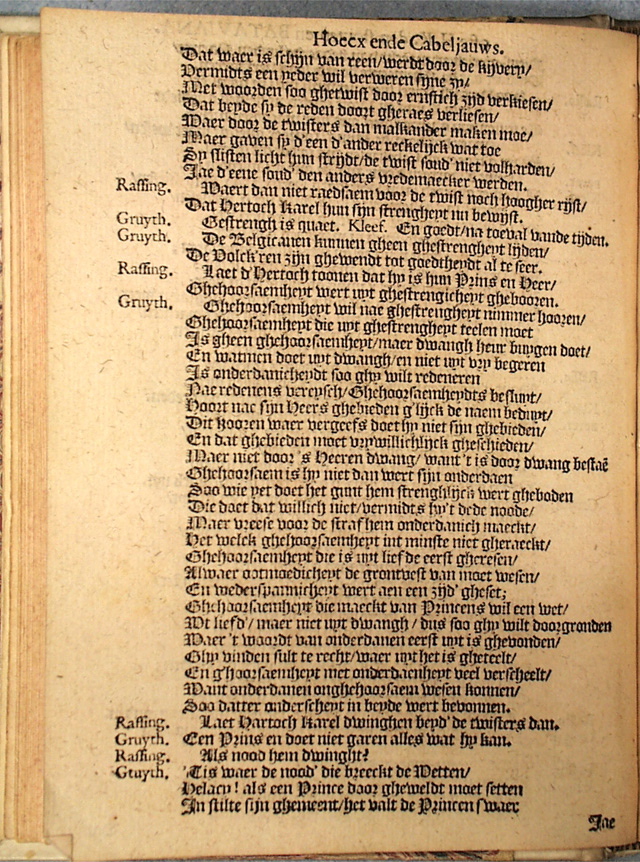 Hoecx ende Cabeljauws.
Dat waer is schijn van reen/werdt door de kijvery/
Vermidts een yeder wil verweren sijne zy/
Met woorden soo ghetwist door ernstich zijd verkiesen/
Dat beyde sy de reden doort gheraes verliesen/
Maer door de twisters dan malkander maken moe/
Maer gaven sy d'een d'ander reckelijck wat toe
Sy slisten licht hun strijdt/de twist soud' niet volharden/
Jae d'eene soud' den anders vredemaecker werden.
Rassing. Waert dan niet raedsaem voor de twist noch hoogher rijst/
Dat Hertoch Karel hun sijn strengheyt nu bewijst.
Gruyth. Gestrengh is quaet. Kleef. En goedt/na toeval vande tijden.
Gruyth. De Belgicanen kunnen gheen ghestrengheyt lijden/
De Volck'ren zijn ghewendt tot goedtheydt al te seer.
Rassing. Laet d'Hertoch toonen dat hy is hun Prins en Heer/
Ghehoorsaemheyt wert uyt ghestrengicheyt ghebooren.
Gruyth. Ghehoorsaemheyt wil nae ghestrengheyt nimmer hooren/
Ghehoorsaemheyt die uyt ghestrengheyt teelen moet
Is gheen ghehoorsaemheyt/maer dwangh heur buygen doet/
En watmen doet uyt dwangh/en niet uyt vry begeren
Is onderdanicheydt soo ghy wilt redeneren
Nae redenens vereysch/Ghehoorsaemheydts besluyt/
Hoort nae sijn Heers ghebieden g'lijck de naem beduyt/
Dit hooren waer vergeefs doet hy niet sijn ghebieden/
En dat ghebieden moet vrywillichlijck gheschieden/
Maer niet door 's Heeren dwang/ want 't is door dwang bestaē
Ghehoorsaem is hy niet dan wert sijn onderdaen
Soo wie yet doet het gunt hem strenghlijck wert gheboden
Die doet dat willich niet/vermidts hy't dede noode/
Maer vreese voor de straf hem onderdanich maeckt/
Het welck ghehoorsaemheyt int minste niet gheraeckt/
Ghehoorsaemheyt die is uyt liefde eerst gheresen/
Alwaer ootmoedicheyt de grontvest van moet wesen/
En wederspannicheyt wert aen een zijd' gheset;
Ghehoorsaemheyt die maeckt van Princens wil een wet/
Wt liefd'/ maer niet uyt dwangh / dus soo ghy wilt doorgronden
Maer 't woordt van onderdanen eerst uyt is ghevonden/
Ghy vinden sult te recht/waer uyt het is gheteelt/
En g'hoorsaemheyt met onderdaenheyt veel verscheelt/
Want onderdanen onghehoorsaem wesen konnen/
Soo datter onderscheyt in beyde wert bevonnen.
Rassing. Laet Hartoch Karel dwinghen beyd' de twisters dan.
Gruyth. Een Prins en doet niet garen alles wat hy kan.
Rassing. Als nood hem dwinght?
Gruyth. 'Tis waer de nood' die breeckt de Wetten/
Helacy! als een Prince door gheweldt moet setten
In stilte sijn ghemeent/het valt de Princen swaer
Jae